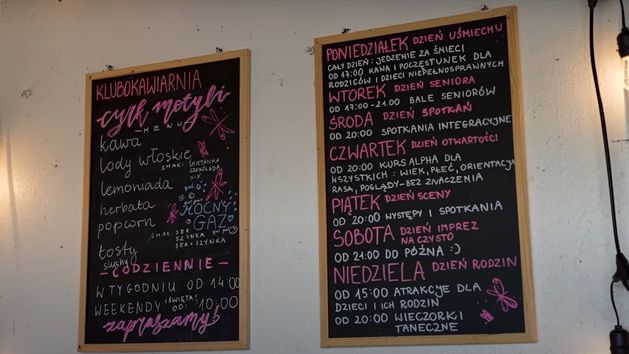 KLUBOKAWIARNIA
cyrk motyli
MENU
kawa
lody włoskie
SMAK: ŚMIETANKA
CZEKOLADA
MIX
lemoniada
herbata
MOCNY
GAZ
popcorn
SMAK: SER
SZYNKA
SER+SZYNKA
tosty
slushy
- CODZIENNIE -
W TYGODNIU OD 14:00
WEEKENDY I ŚWIĘTA OD: 10:00
zapraszamy!
PONIEDZIAŁEK DZIEŃ UŚMIECHU
CAŁY DZIEŃ: JEDZENIE ZA ŚMIECI
OD 17:00 KAWA I POCZĘSTUNEK DLA
RODZICÓW I DZIECI NIEPEŁNOSPRAWNYCH
WTOREK DZIEŃ SENIORA
OD 17:00-21:00 BALE SENIORÓW
ŚRODA DZIEŃ SPOTKAŃ
OD 20:00 SPOTKANIA INTEGRACYJNE
CZWARTEK DZIEŃ OTWARTOŚCI
OD 20:00 KURS ALPHA DLA
WSZYSTKICH: WIEK, PŁEĆ, ORIENTACJA
RASA, POGLĄDY-BEZ ZNACZENIA
PIĄTEK DZIEŃ SCENY
OD 20:00 WYSTĘPY I SPOTKANIA
SOBOTA DZIEŃ IMPREZ
NA CZYSTO
OD 21:00 DO PÓŹNA :)
NIEDZIELA DZIEŃ RODZIN
OD 15:00 ATRAKCJE DLA
DZIECI I ICH RODZIN
OD 20:00 WIECZORKI
TANECZNE